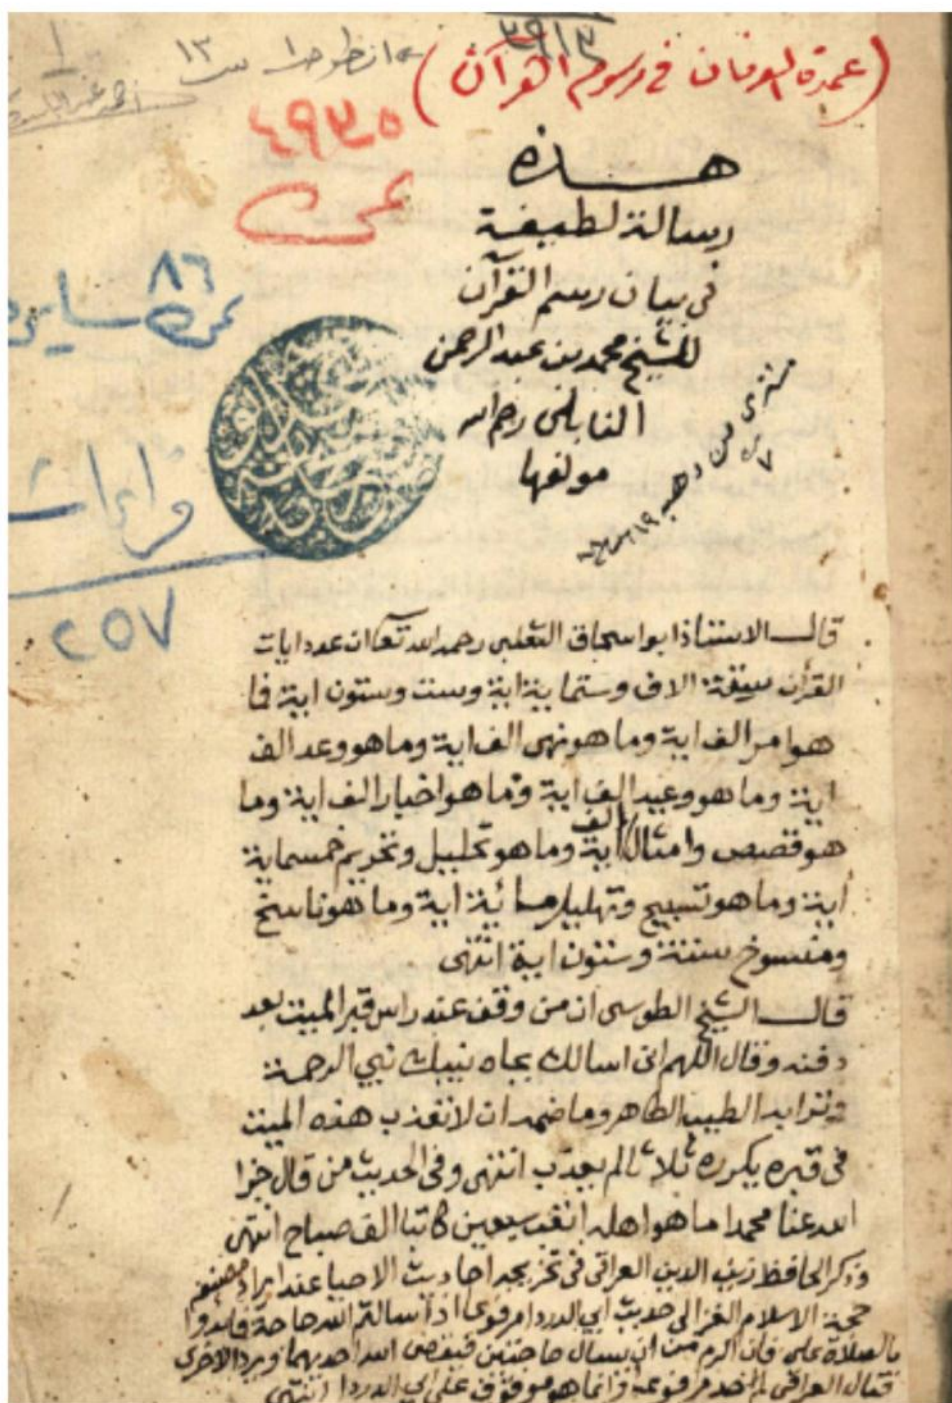 ٣٩١٣
(عمدة العرفان في رسوم القرآن)
١٣
٤٩٣٠٥
عمومي
هذه
رسالة لطيفة
في بيان رسم القرآن
للشيخ محمد بن عبد الرحمن
النابلسي رحم الله
مولفها
٨٦
قراءات
٢٥٧
قال الاستاذ ابو اسحاق الثعلبي رحمه الله تعا ان عدد ايات
القرآن ستة الاف وستماية اية وست وستون اية فما
هو امر الف اية وما هو نهى الف اية وما هو وعد الف
اية وما هو وعيد الف اية وما هو اخبار الف اية وما
هو قصص وامثال الف اية وما هو تحليل وتحريم خمسماية
اية وما هو تسبيح وتهليل مائة اية وما هو ناسخ
ومنسوخ ستة وستون اية انتهى
قال الشيخ الطوسى ان من وقف عند راس قبر الميت بعد
دفنه وقال اللهم انى اسالك بجاه نبيك نبي الرحمة
الطيب الطاهر وما ضمه ان لا تعذب هذه الميت
في قبره يكرره ثلاثا لم يعذب انتهى وفى الحديث من قال جزا
الله عنا محمدا ما هو اهله اتعب سبعين كاتبا الف صباح انتهى
وذكر الحافظ زين الدين العراقى فى تخريجه احاديث الاحيا عند ايراد مصنفه
حجة الاسلام الغزالى حديث ابي الدردا مرفوعا اذا سالتم الله حاجة فابدوا
بالصلاة على فان الله اكرم من ان يسال حاجتين فيقضى احديهما ويرد الاخرى
فقال العراقى لم اجده مرفوعا وانما هو موقوف على ابي الدردا انتهى